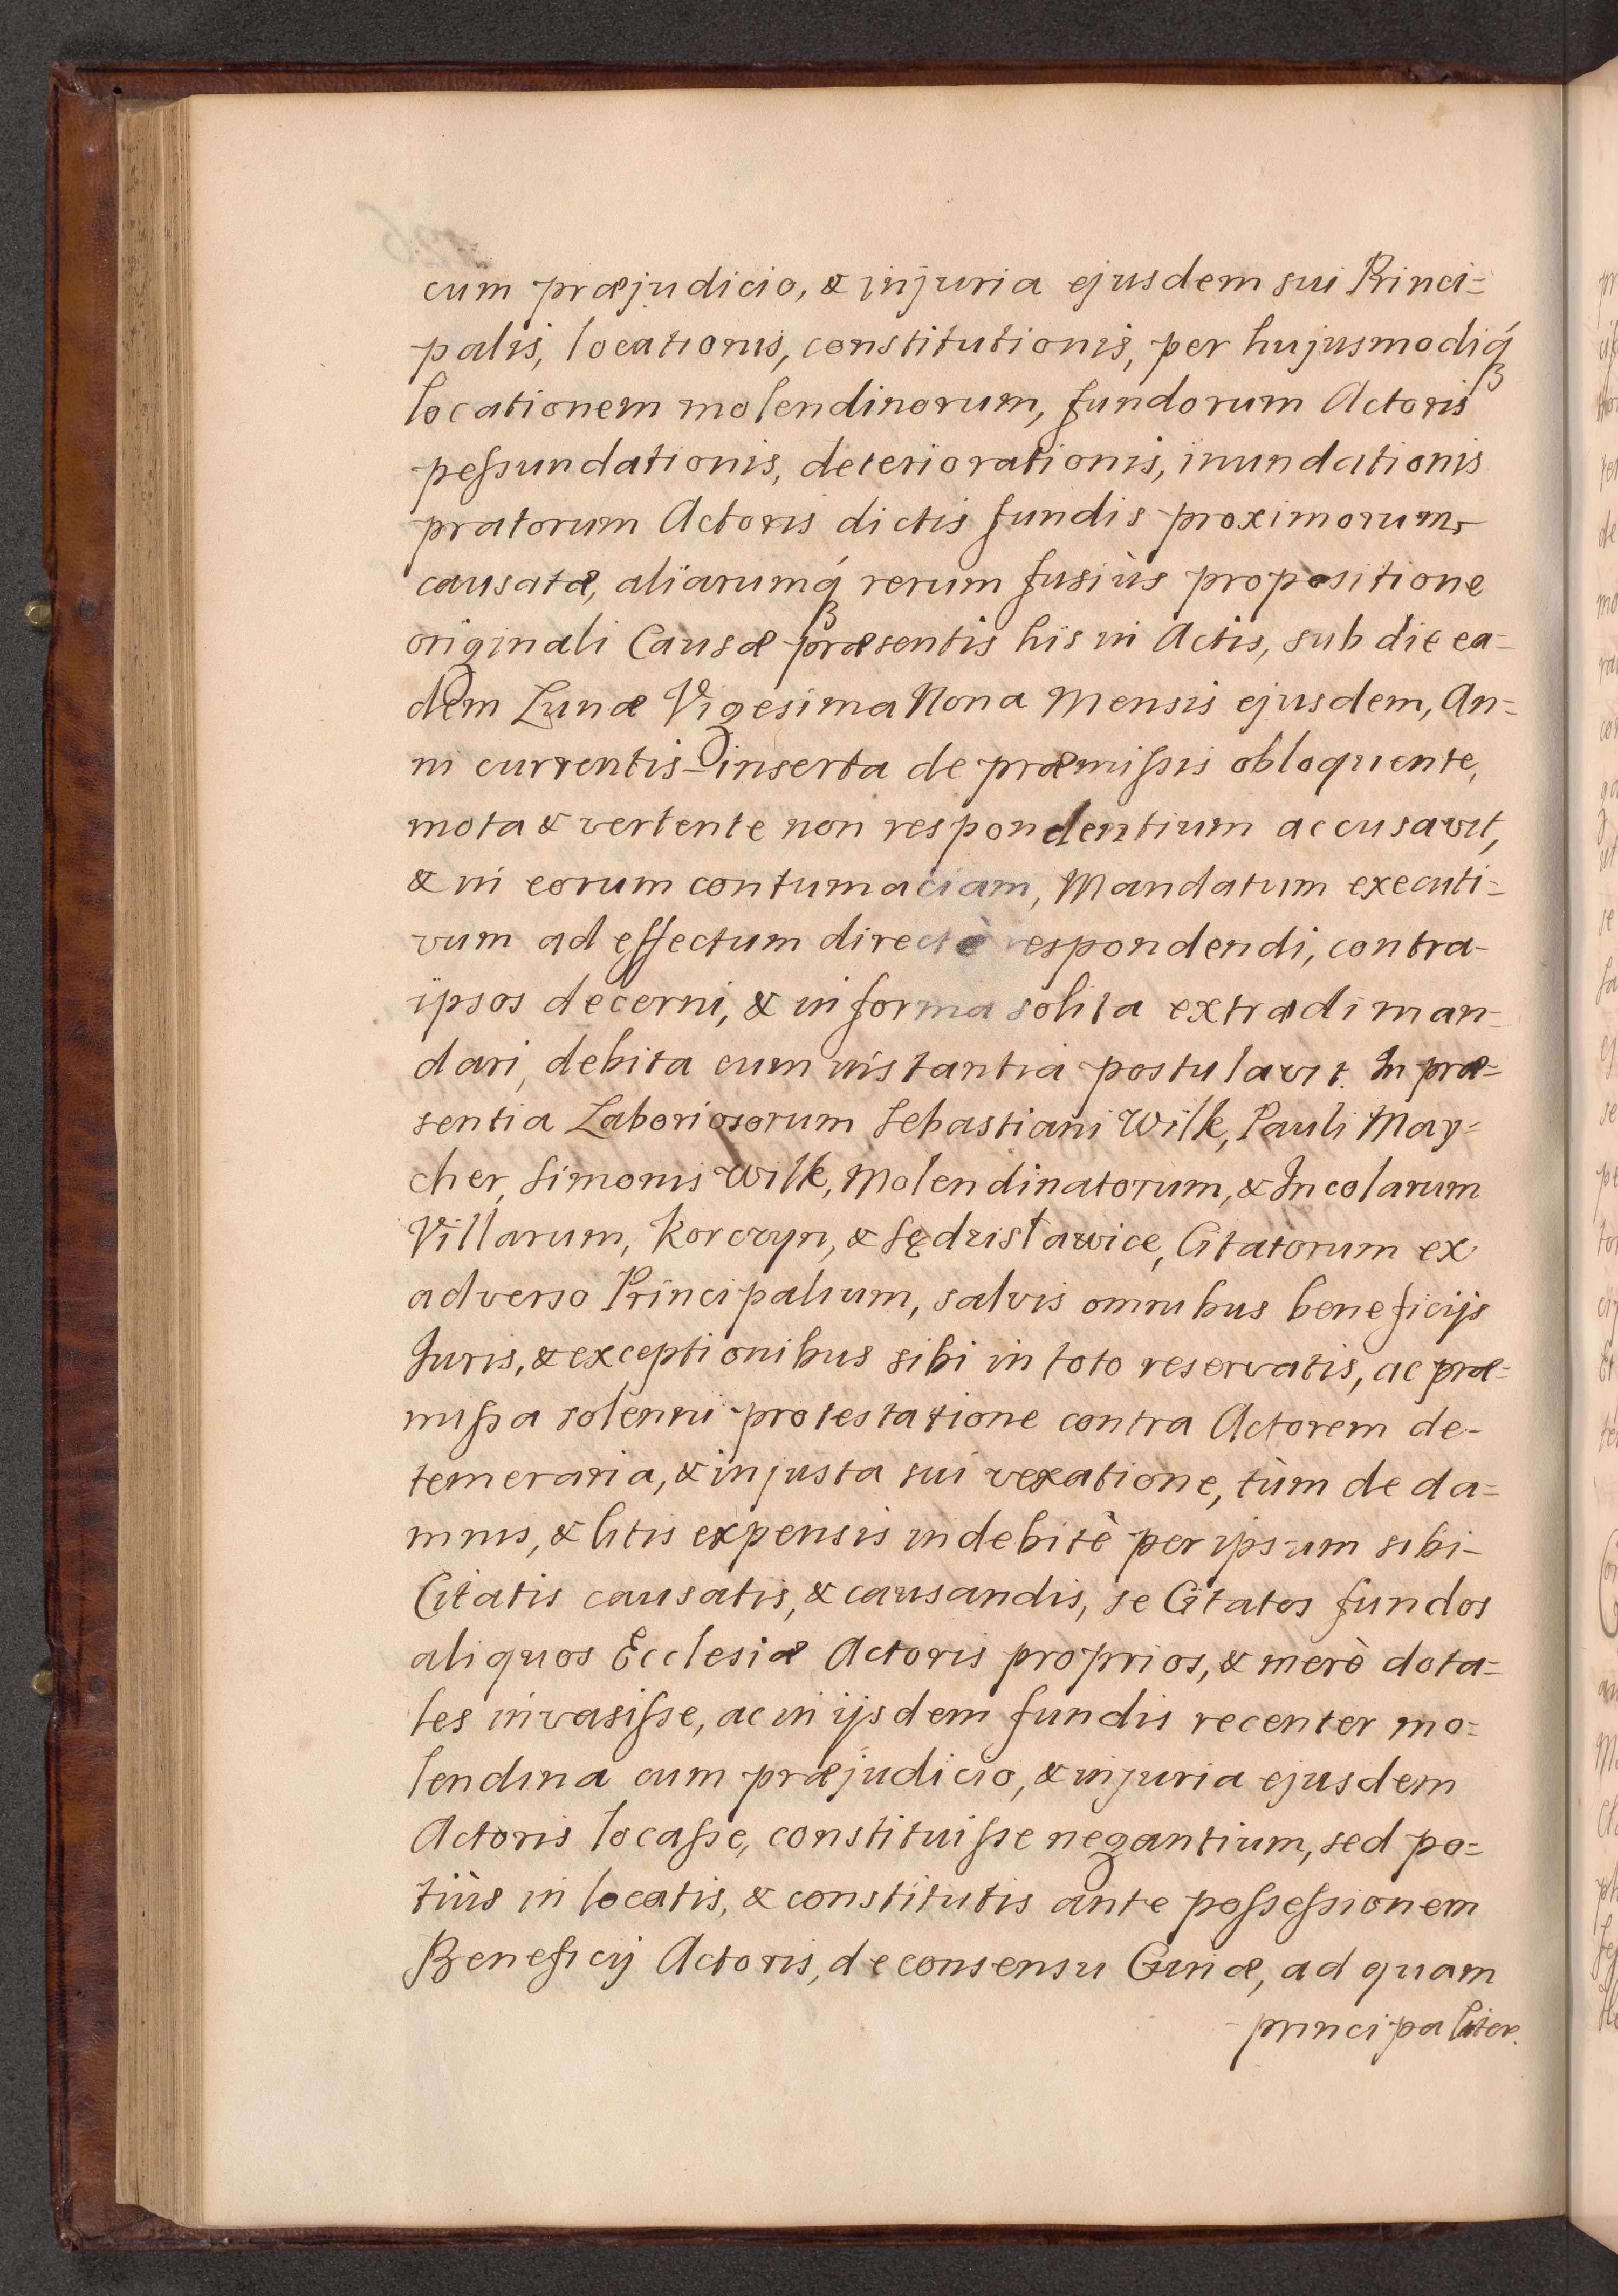 cum præjudicio, & injuria ejusdem sui Princi=
palis, locationis, constitutionis, per hujusmodiq́ꝫ
locationem molendinorum, fundorum Actoris
peſsundationis, deteriorationis, inundationis
pratorum Actoris dictis fundis proximorum,
causatæ, aliarumq́ꝫ rerum fusiùs propositione
originali Causæ præsentis his in Actis, sub die ea=
dem Lunæ Vigesima Nona Mensis ejusdem, An=
ni currentis inserta de præmiſsis obloquente,
mota & vertente non respondentium accusavit,
& in eorum contumaciam, Mandatum executi=
vum ad effectum directè respondendi, contra
ipsos decerni, & in forma solita extradi man=
dari, debita cum instantia postulavit. In præ=
sentia Laboriosorum Sebastiani Wilk, Pauli May=
cher, Simonis Wilk, Molendinatorum, & Incolarum
Villarum, Korczyn, & Sędzisławice, Citatorum ex
adverso Principalium, salvis omnibus beneficijs
Juris, & exceptionibus sibi in toto reservatis, ac præ=
miſsa solenni protestatione contra Actorem de
temeraria, & injusta sui vexatione, tùm de da=
mnis, & litis expensis indebitè per ipsum sibi
Citatis causatis, & causandis, se Citatos fundos
aliquos Ecclesiæ Actoris proprios, & merè dota=
les invasiſse, ac in ijsdem fundis recenter mo=
lendina cum præjudicio, & injuria ejusdem
Actoris locaſse, constituiſse negantium, sed po=
tiùs in locatis, & constitutis ante poſseſsionem
Beneficij Actoris, de consensu Curiæ, ad quam
principaliter